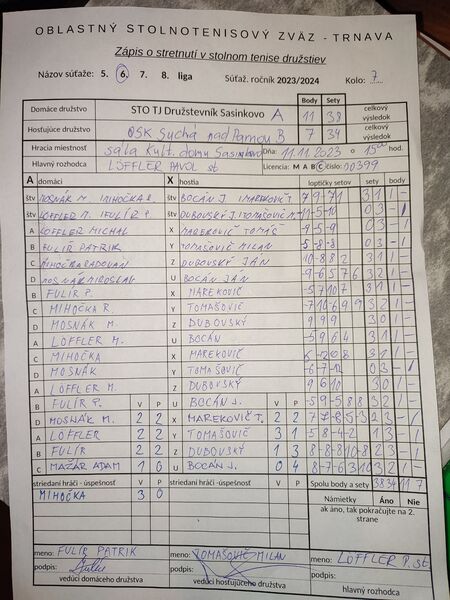 OBLASTNÝ STOLNOTENISOVÝ ZVÄZ - TRNAVA
Zápis o stretnutí v stolnom tenise družstiev
Názov súťaže: 5. 6. 7. 8. liga Súťaž. ročník 2023/2024 Kolo: 7
Body Sety
Domáce družstvo STO TJ Družstevník Sasinkovo A 11 38 celkový výsledok
Hosťujúce družstvo OŠK Suchá nad Parnou B 7 34 celkový výsledok
Hracia miestnosť sála Kult. domu Sasinkovo Dňa: 11.11.2023 o 15 hod.
Hlavný rozhodca LÖFFLER PAVOL st Licencia: M A B C číslo: 00399
A domáci X hostia loptičky setov sety body
štv MOSNÁK M. MIHOČKA R. štv BOCÁN J. MAREKOVIČ T. 31 1/-
štv LÖFFLER M. FULÍR P. štv DUBOVSKÝ J. TOMAŠOVIČ M. 03 -/1
A LÖFFLER MICHAL X MAREKOVIČ TOMÁŠ -9-5-9 03 -/1
B FULÍR PATRIK Y TOMAŠOVIČ MILAN -5-8-8 03 -/1
C MIHOČKA RADOVAN Z DUBOVSKÝ JÁN 31 1/-
D MOSNÁK MIROSLAV U BOCÁN JÁN 32 1/-
B FULÍR P. X MAREKOVIČ 31 1/-
C MIHOČKA R. Y TOMAŠOVIČ 32 1/-
D MOSNÁK M. Z DUBOVSKÝ 9 9 9 30 1/-
A LÖFFLER M. U BOCÁN -5 9 6 4 31 1/-
C MIHOČKA X MAREKOVIČ 31 1/-
D MOSNÁK Y TOMAŠOVIČ -6-7-12 03 -/1
A LÖFFLER M. Z DUBOVSKÝ 9 6 10 30 1/-
B FULÍR P. V P U BOCÁN J. V P 32 1/-
D MOSNÁK M. 2 2 X MAREKOVIČ T. 2 2 23 -/1
A LÖFFLER 2 2 Y TOMAŠOVIČ 3 1 5-8-4-2 13 -/1
B FULÍR 2 2 Z DUBOVSKÝ 1 3 23 -/1
C MAŽÁR ADAM 1 0 U BOCÁN J. 0 4 32 1/-
striedaní hráči - úspešnosť V P striedaní hráči - úspešnosť V P Spolu body a sety 38 34 11 7
MIHOČKA 3 0 Námietky Áno Nie
ak áno, tak pokračujte na 2. strane
meno: FULÍR PATRIK meno: TOMAŠOVIČ MILAN LÖFFLER P. st
podpis: podpis:
vedúci domáceho družstva vedúci hosťujúceho družstva hlavný rozhodca